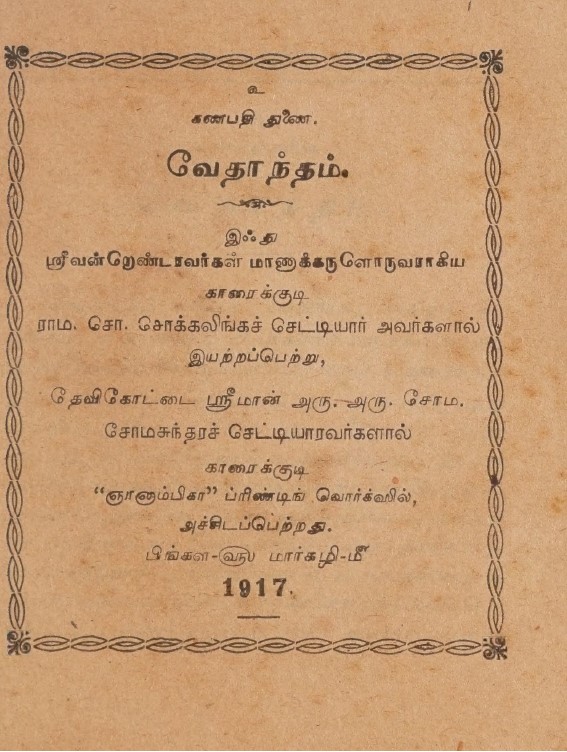 உ
கணபதி துணை.
வேதாந்தம்.
இஃது
ஸ்ரீவன்றெண்டரவர்கள் மாணாக்கருளொருவராகிய
காரைக்குடி
ராம. சோ. சொக்கலிங்கச் செட்டியார் அவர்களால்
இயற்றப்பெற்று,
தேவிகோட்டை ஸ்ரீமான் அரு. அரு. சோம.
சோமசுந்தரச் செட்டியாரவர்களால்
காரைக்குடி
“ஞானாம்பிகா” ப்ரிண்டிங் வொர்க்ஸில்,
அச்சிடப்பெற்றது.
பிங்கள-௵ மார்கழி-௴
1917.